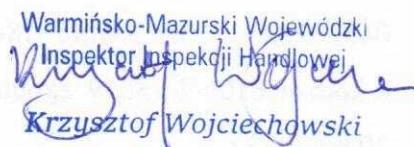 Warmińsko-Mazurski Wojewódzki
Inspektor Inspekcji Handlowej
Krzysztof Wojciechowski